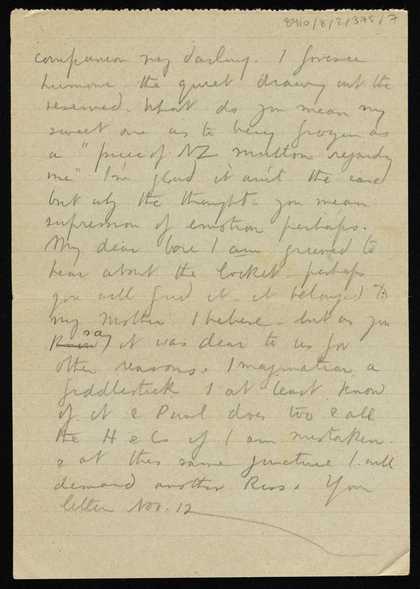 8910/8/2/375/7
companion my darling. I foresee
humour the quiet drawing out the
reserved. What do you mean my
sweet one as to being frozen as
a "piece of NZ mutton regarding
me" I'm glad it ain't the case
but why the thought - you mean
supression of emotion perhaps.
My dear love I am grieved to
hear about the locket - perhaps
you will find it - it belonged to
my Mother I believe - but as you
say it was dear to us for
other reasons. Imagination a
fiddlestick I at least know
of it & Paul does too & all
the H & Cs if I am mistaken.
& at this same juncture I will
demand another Kiss. Your
letter Nov. 12